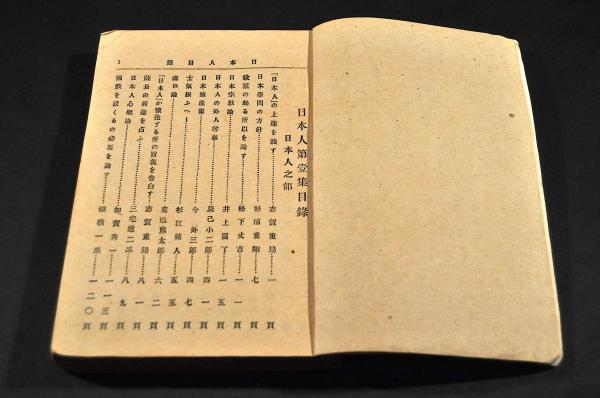 日本人目錄
1
日本人第壹集目錄
日本人之部
「日本人」の上途を餞す……志賀重昂……一頁
日本學問の方針……杉浦重剛……七頁
の起る所以を論ず……松下丈吉……一一頁
日本宗教論……井上圓了……一五頁
日本人の外人尊奉……辰己小二郎……四一頁
日本殖産策……今外三郎……四七頁
士氣振ふ……杉江輔人……五五頁
論……菊池熊太郎……六二頁
「日本人」が懷抱する所の旨義を告白す……志賀重昂……八一頁
薩長の前途を占ふ……三宅雄二郎……八九頁
日本人心概論……賀秀一……一一三頁
國教を設くるの必要を論ず……棚橋一郎……一二〇頁